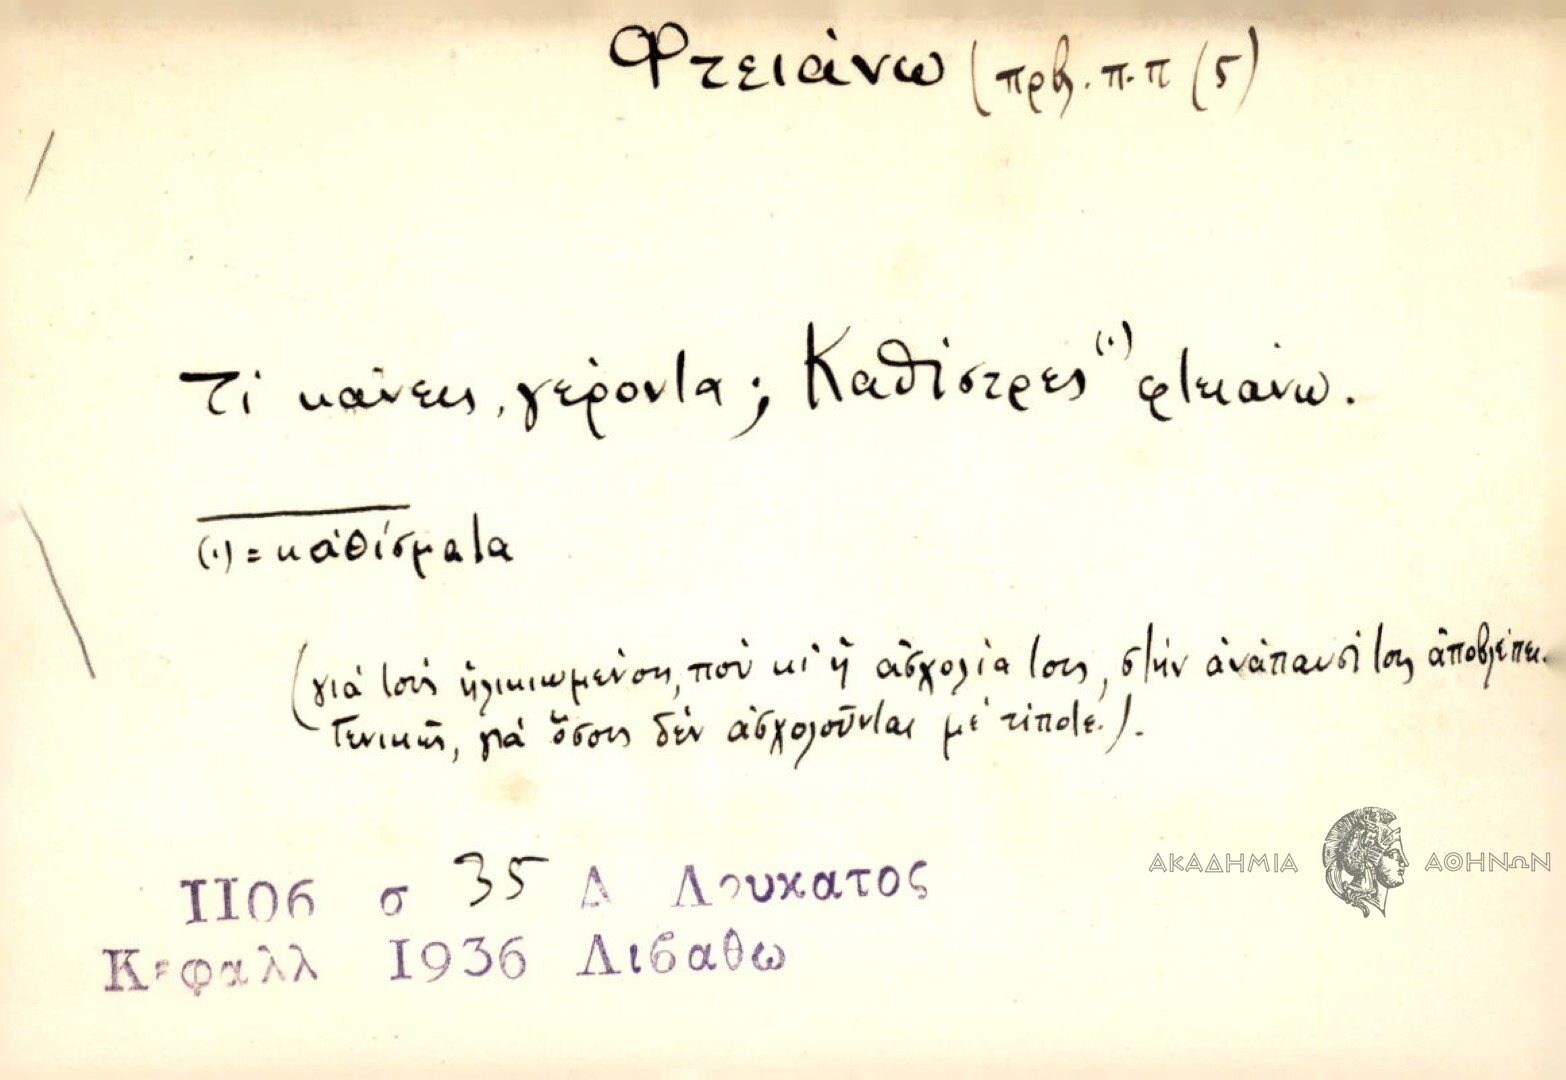 Φτειάνω (πρβ. π.π (5)
Τί κάνεις, γέροντα; Καθίστρες (1) φτειάνω.
(1) = καθίσματα
(γιά τούς ἡλικιωμένους, πού κι' ἡ ἀσχολία τους, στήν ἀνάπαυσί τους ἀποβλέπει.
Γενικῶς, γιά ὅσους δέν ἀσχολοῦνται μέ τίποτε.).
ΑΚΑΔΗΜΙΑ ΑΘΗΝΩΝ
1106 σ 35 Δ Λουκατος
Κεφαλλ 1936 Λιβαθω